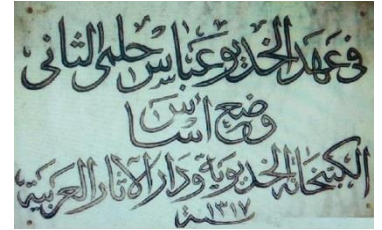 في عهد الخديو عباس حلمي الثاني
وضع اساس
الكتبخانة الخديوية ودار الاثار العربية
سنة ١٣١٧